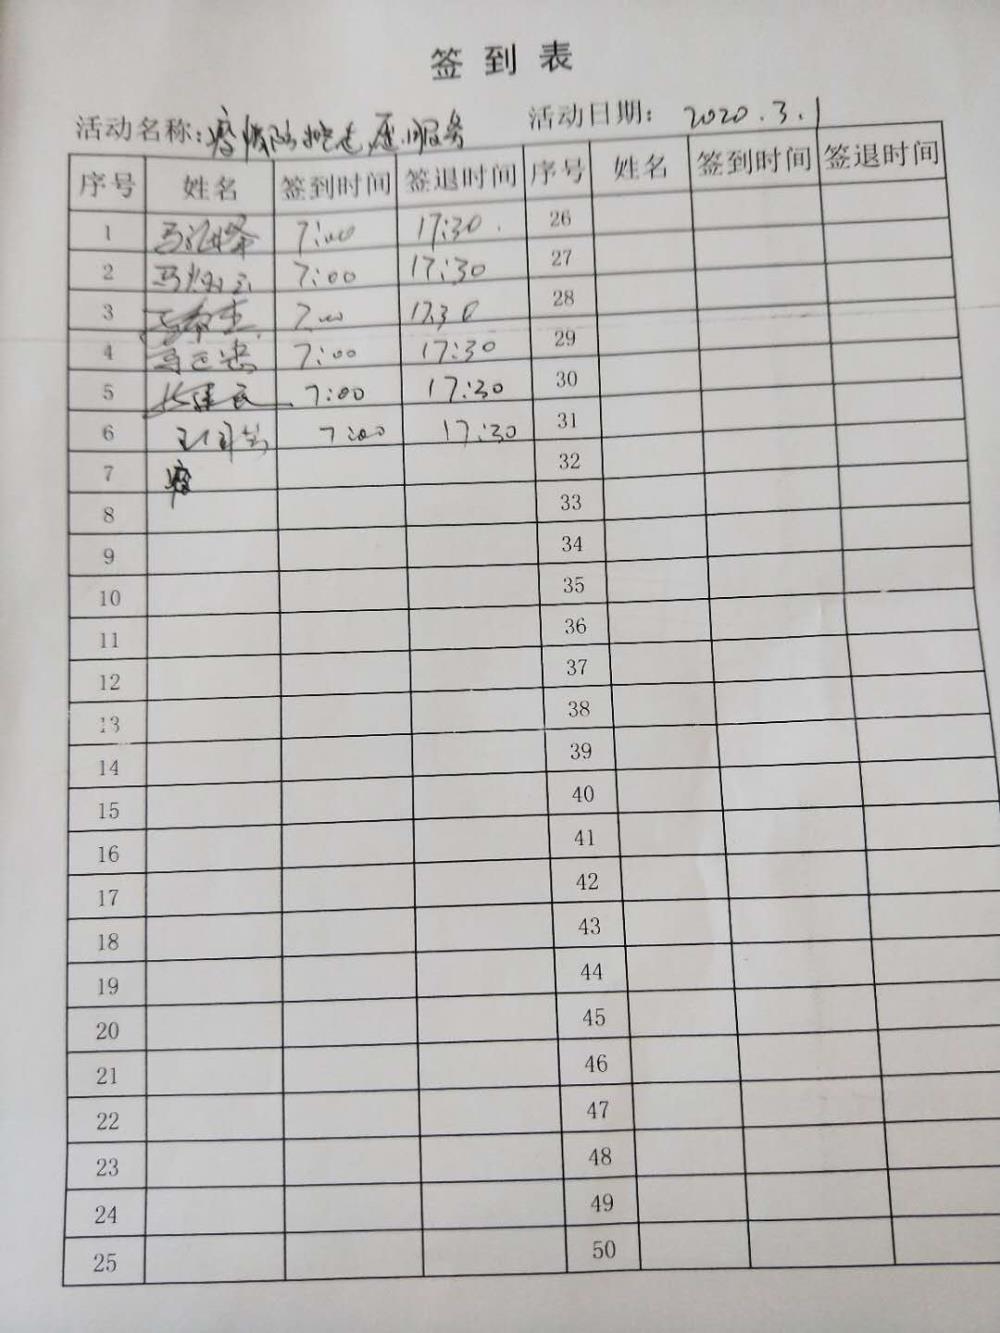 签到表
活动名称:疫情防控志愿服务 活动日期: 2020.3.1
序号 姓名 签到时间 签退时间 序号 姓名 签到时间 签退时间
1 7:00 17:30 26
2 7:00 17:30 27
3 7:00 17:30 28
4 7:00 17:30 29
5 7:00 17:30 30
6 7:00 17:30 31
7 疫 32
8 33
9 34
10 35
11 36
12 37
13 38
14 39
15 40
16 41
17 42
18 43
19 44
20 45
21 46
22 47
23 48
24 49
25 50